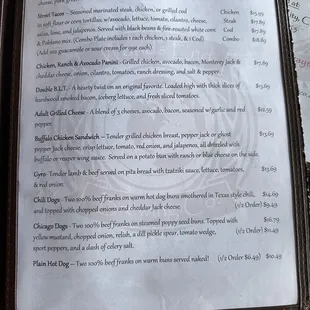 Street Tacos – Seasoned marinated steak, chicken, or grilled cod Chicken $15.99
in soft flour or corn tortillas w/avocado, lettuce, tomato, cilantro, cheese, Steak $17.89
salsa, lime, and jalapenos. Served with black beans & fire roasted white corn Cod $17.89
& Poblano mix. (Combo Plate includes 1 each chicken, 1 steak, & 1 Cod) Combo
(Add on guacamole or sour cream for 99¢ each)
Chicken, Ranch & Avocado Panini – Grilled chicken, avocado, bacon, Monterey Jack &
cheddar cheese, onion, cilantro, tomatoes, ranch dressing, and salt & pepper.
Double B.L.T. – A hearty twist on an original favorite. Loaded high with thick slices of
hardwood smoked bacon, iceberg lettuce, and fresh sliced tomatoes.
Adult Grilled Cheese – A blend of 3 cheeses, avocado, bacon, seasoned w/garlic and red
pepper.
Buffalo Chicken Sandwich – Tender grilled chicken breast, pepper jack or ghost
pepper Jack cheese, crisp lettuce, tomato, red onion, and jalapenos, all drizzled with
buffalo or reaper wing sauce. Served on a potato bun with ranch or blue cheese on the side.
Gyro – Tender lamb & beef served on pita bread with tzatziki sauce, lettuce, tomatoes,
& red onion.
Chili Dogs – Two 100% beef franks on warm hot dog buns smothered in Texas style chili, $14.69
and topped with chopped onions and cheddar Jack cheese. (1/2 Order) $9.49
Chicago Dogs – Two 100% beef franks on steamed poppy seed buns. Topped with $16.79
yellow mustard, chopped onion, relish, a dill pickle spear, tomato wedge, (1/2 Order) $11.49
sport peppers, and a slash of celery salt.
Plain Hot Dog – Two 100% beef franks on warm buns served naked! (1/2 Order $6.49) $10.49